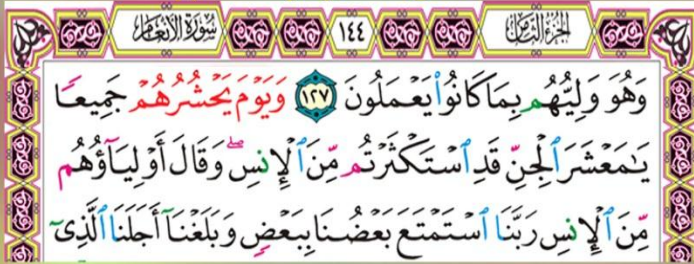 الجزء الثامن ١٤٤ سورة الأنعام
وَهُوَ وَلِيُّهُم بِمَا كَانُوا۟ يَعْمَلُونَ ١٢٧ وَيَوْمَ يَحْشُرُهُمْ جَمِيعًا
يَـٰمَعْشَرَ ٱلْجِنِّ قَدِ ٱسْتَكْثَرْتُم مِّنَ ٱلْإِنسِ ۖ وَقَالَ أَوْلِيَآؤُهُم
مِّنَ ٱلْإِنسِ رَبَّنَا ٱسْتَمْتَعَ بَعْضُنَا بِبَعْضٍ وَبَلَغْنَآ أَجَلَنَا ٱلَّذِىٓ